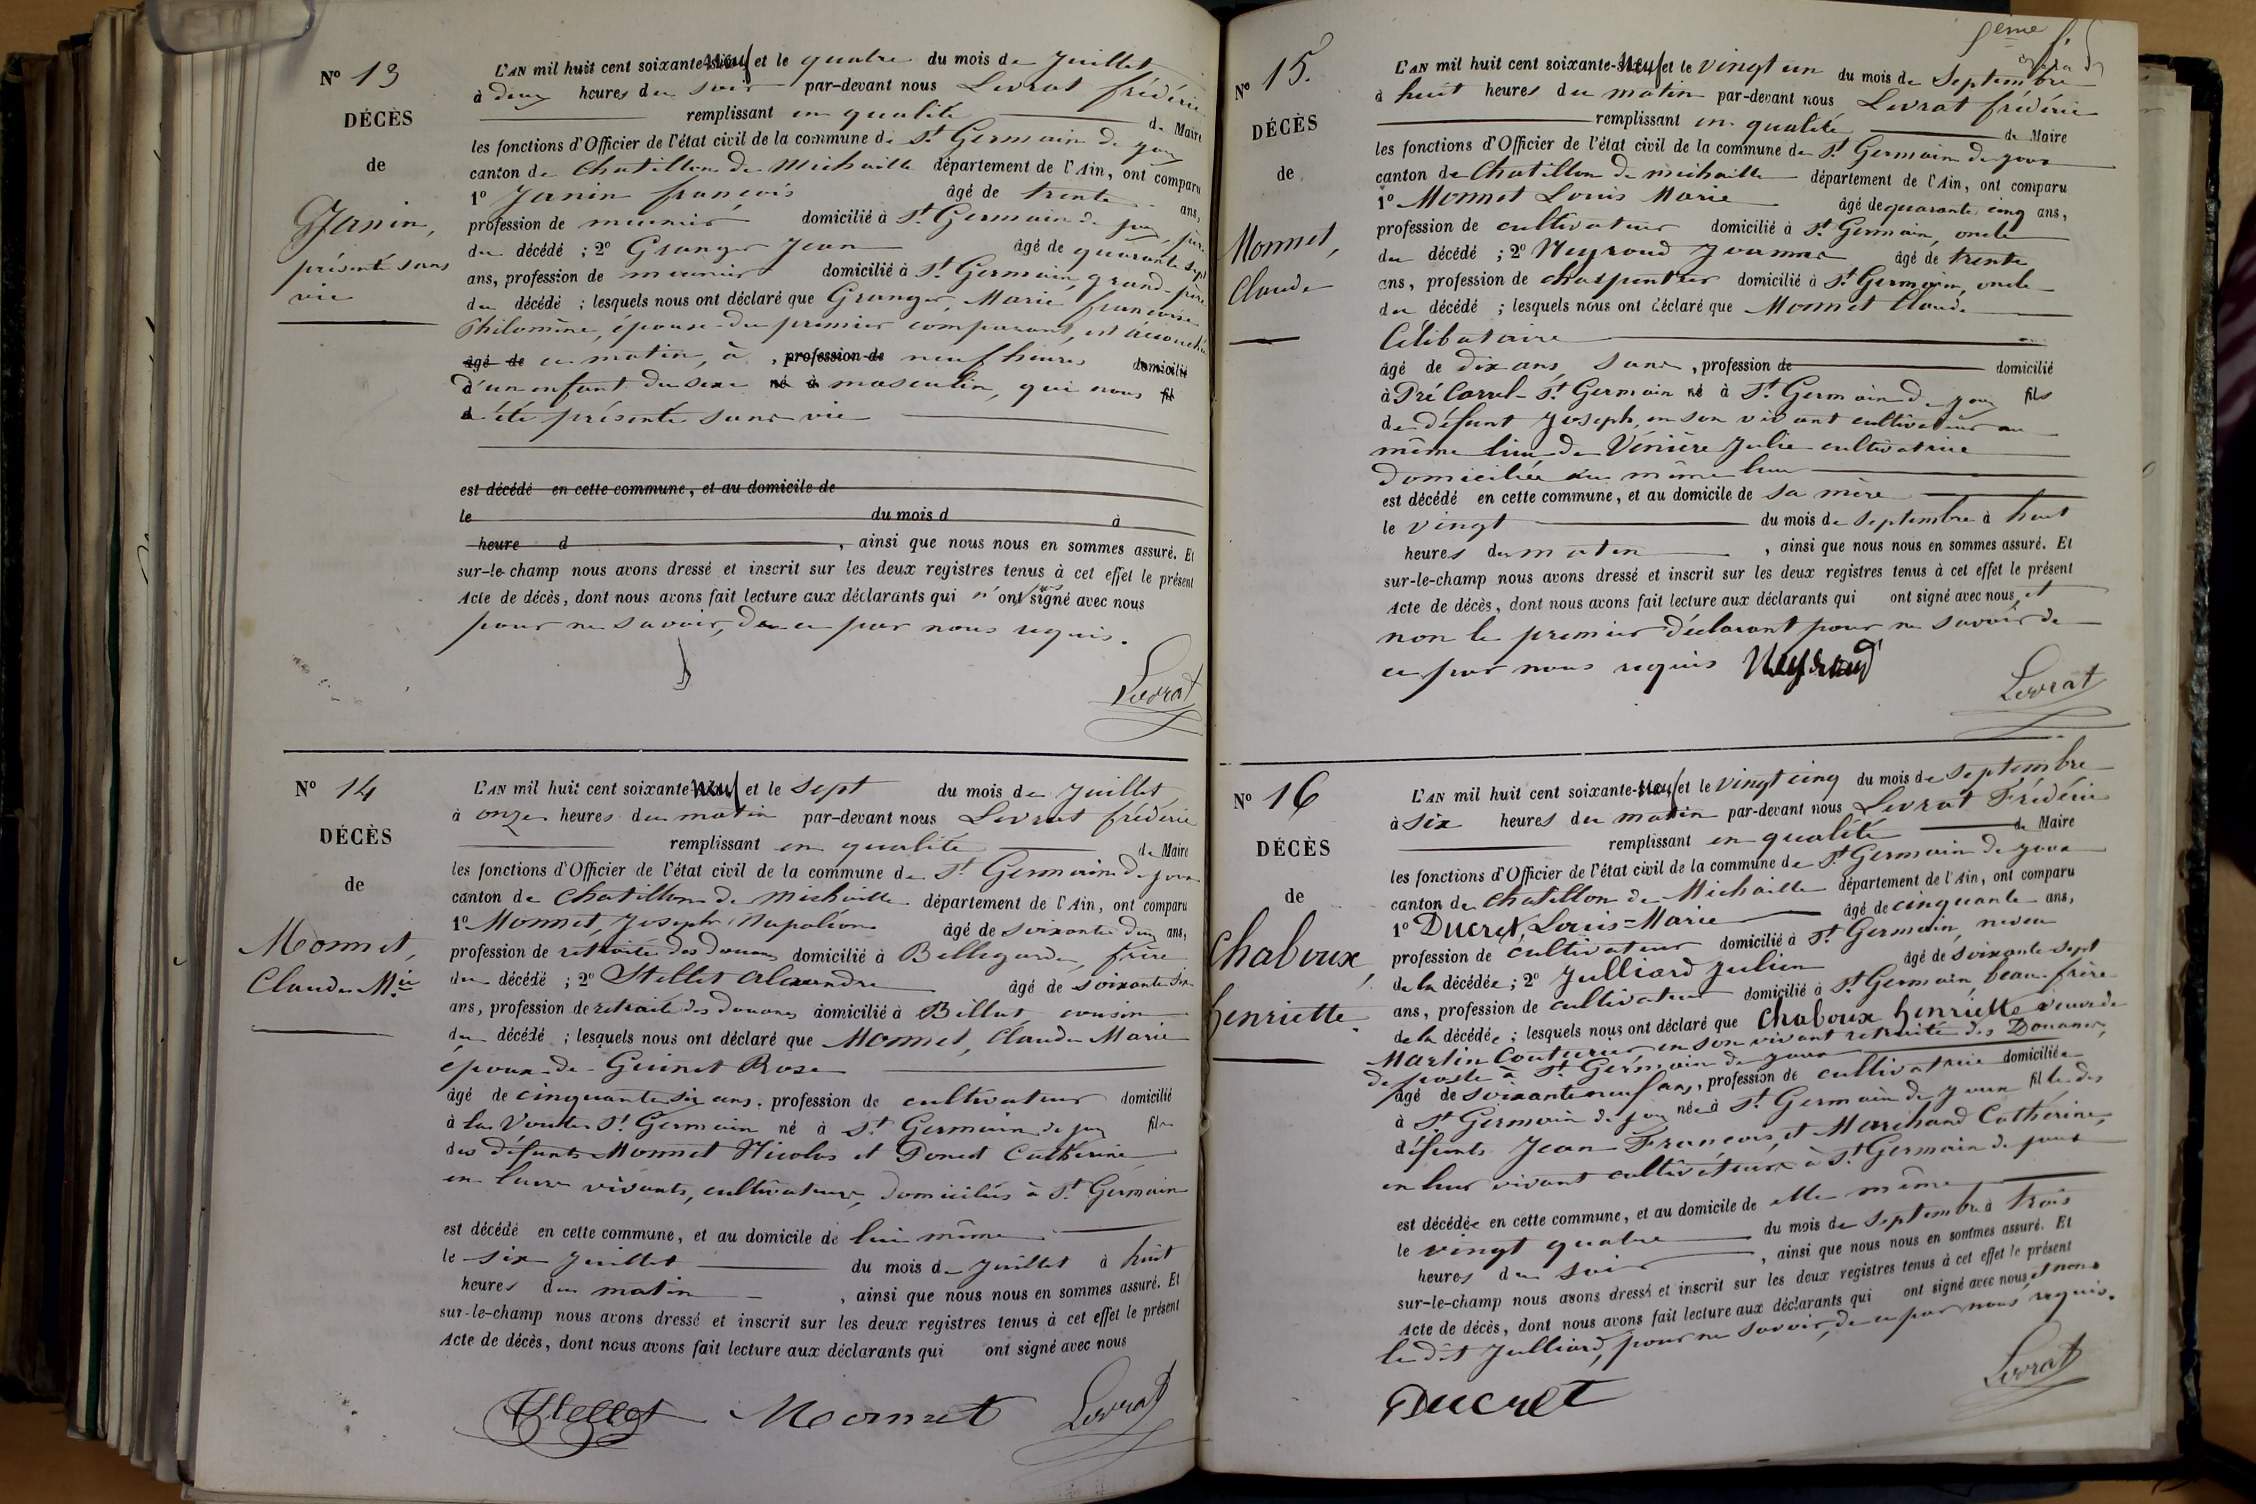 N° 13
DÉCÈS
de
Janin,
présenté sans
vie
L'AN mil huit cent soixante-neuf et le quatre du mois de Juillet
à deux heures du soir par-devant nous Levrat frédéric
remplissant en qualité de Maire
les fonctions d'Officier de l'état civil de la commune de St Germain de joux
canton de Chatillon de Michaille département de l'Ain, ont comparu
1° Janin françois âgé de trente ans,
profession de meunier domicilié à St Germain de joux, père
du décédé ; 2° Granger Jean âgé de quarante sept
ans, profession de meunier domicilié à St Germain, grand-père
du décédé ; lesquels nous ont déclaré que Granger, Marie françoise
Philomène, épouse du premier comparant, est accouchée
âgé de ce matin, à , profession de neuf heures domicilié
d'un enfant du sexe né à masculin, qui nous fil
a été présenté sans vie
est décédé en cette commune, et au domicile de
le du mois d à
heure d , ainsi que nous nous en sommes assuré. Et
sur-le-champ nous avons dressé et inscrit sur les deux registres tenus à cet effet le présent
Acte de décès, dont nous avons fait lecture aux déclarants qui n'ont pas signé avec nous
pour ne savoir, de ce par nous requis.
Levrat
N° 14
DÉCÈS
de
Monnet,
Claude Mie
L'AN mil huit cent soixante-neuf et le sept du mois de Juillet
à onze heures du matin par-devant nous Levrat frédéric
remplissant en qualité de Maire
les fonctions d'Officier de l'état civil de la commune de St Germain de joux
canton de Chatillon de Michaille département de l'Ain, ont comparu
1° Monnet, Joseph Napoléon âgé de soixante dix ans,
profession de retraité des douanes domicilié à Bellegarde, frère
du décédé ; 2° Stellet Alexandre âgé de soixante six
ans, profession de retraité des douanes domicilié à Billiat, cousin
du décédé ; lesquels nous ont déclaré que Monnet, Claude Marie
époux de Guinet Rose
âgé de cinquante six ans, profession de cultivateur domicilié
à la Voute St Germain né à St Germain de joux fils
des défunts Monnet Nicolas et Ponet Catherine
en leurs vivants, cultivateurs, domiciliés à St Germain
est décédé en cette commune, et au domicile de lui même
le six Juillet du mois de Juillet à huit
heures du matin , ainsi que nous nous en sommes assuré. Et
sur-le-champ nous avons dressé et inscrit sur les deux registres tenus à cet effet le présent
Acte de décès, dont nous avons fait lecture aux déclarants qui ont signé avec nous
Stellet Monnet Levrat
N° 15.
DÉCÈS
de
Monnet,
Claude
L'AN mil huit cent soixante-neuf et le vingt un du mois de Septembre
à huit heures du matin par-devant nous Levrat frédéric
remplissant en qualité de Maire
les fonctions d'Officier de l'état civil de la commune de St Germain de joux
canton de Chatillon de michaille département de l'Ain, ont comparu
1° Monnet Louis Marie âgé de quarante cinq ans,
profession de cultivateur domicilié à St Germain, oncle
du décédé ; 2° Neyroud Jeanmar âgé de trente
ans, profession de charpentier domicilié à St Germain, oncle
du décédé ; lesquels nous ont déclaré que Monnet Claude
Célibataire
âgé de dix ans, sans , profession de domicilié
à Pré Carrel St Germain né à St Germain de joux fils
de défunt Joseph, en son vivant cultivateur au
même lieu de Vénière Julie cultivatrice
domiciliée au même lieu
est décédé en cette commune, et au domicile de sa mère
le vingt du mois de Septembre à huit
heures du matin , ainsi que nous nous en sommes assuré. Et
sur-le-champ nous avons dressé et inscrit sur les deux registres tenus à cet effet le présent
Acte de décès, dont nous avons fait lecture aux déclarants qui ont signé avec nous, et
non le premier déclarant pour ne savoir de
ce par nous requis Neyroud
Levrat
N° 16
DÉCÈS
de
Chaboux,
henriette.
L'AN mil huit cent soixante-neuf et le vingt cinq du mois de Septembre
à six heures du matin par-devant nous Levrat Frédéric
remplissant en qualité de Maire
les fonctions d'Officier de l'état civil de la commune de St Germain de joux
canton de Chatillon de Michaille département de l'Ain, ont comparu
1° Ducret, Louis-Marie âgé de cinquante ans,
profession de cultivateur domicilié à St Germain, neveu
de la décédée ; 2° Julliard Julien âgé de soixante-sept
ans, profession de cultivateur domicilié à St Germain, beau-frère
de la décédée ; lesquels nous ont déclaré que Chaboux henriette veuve de
Martin Couturier en son vivant retraité des Douanes,
de poste à St Germain de joux
âgé de soixante neuf ans, profession de cultivatrice domiciliée
à St Germain de joux née à St Germain de joux fille des
défunts Jean François, et Marchand Catherine,
en leur vivant cultivateurs à St Germain de joux
est décédée en cette commune, et au domicile de elle même
le vingt quatre du mois de Septembre à trois
heures du soir , ainsi que nous nous en sommes assuré. Et
sur-le-champ nous avons dressé et inscrit sur les deux registres tenus à cet effet le présent
Acte de décès, dont nous avons fait lecture aux déclarants qui ont signé avec nous, et non
le dit Julliard, pour ne savoir, de ce par nous requis.
Levrat
Ducret